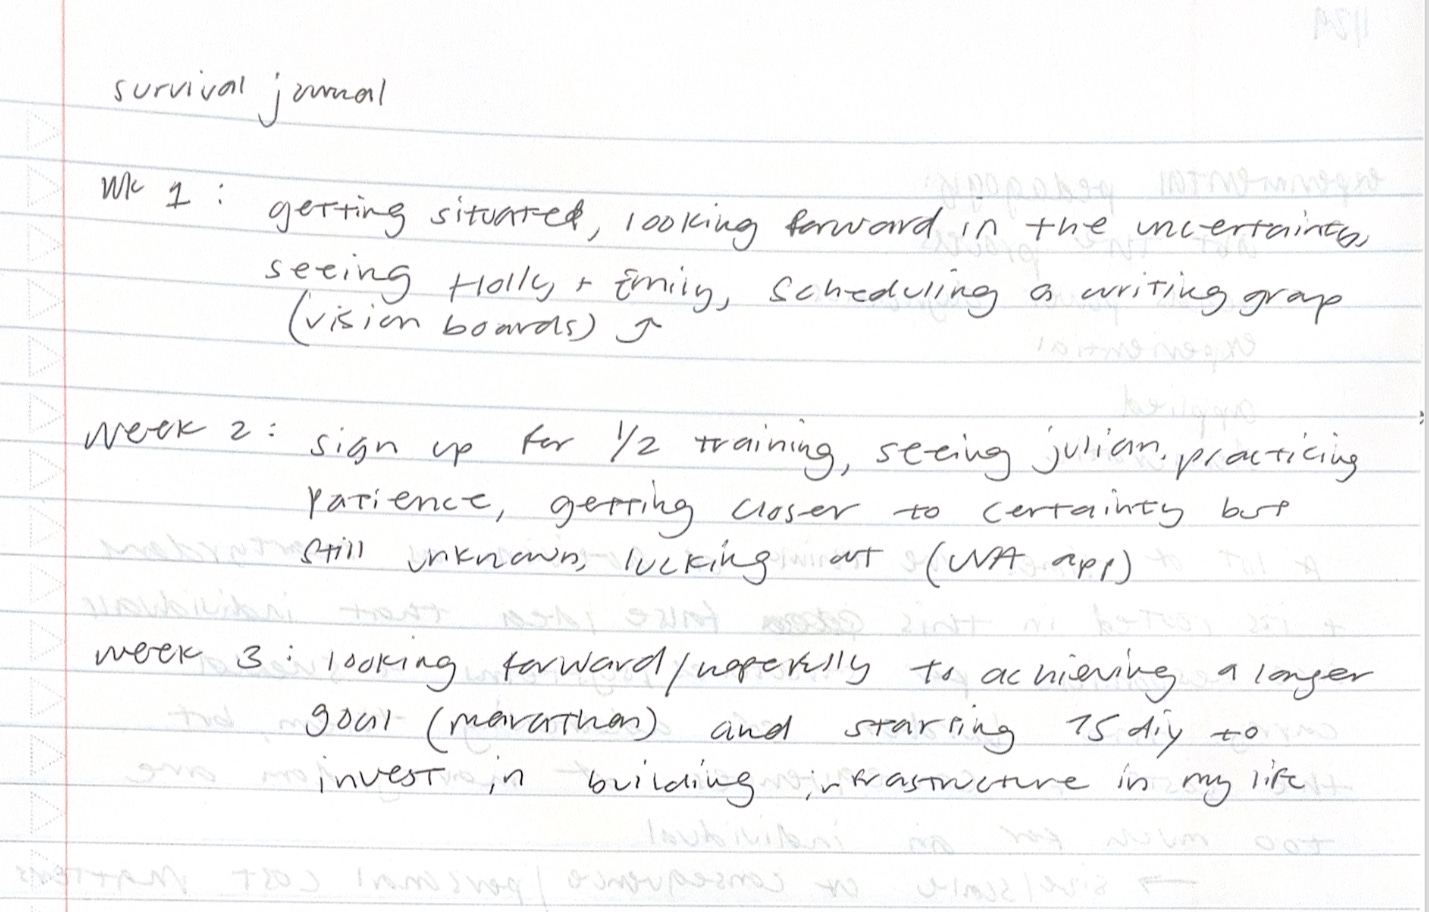 survival journal
Wk 1: getting situated, looking forward in the uncertainty,
seeing Holly + Emily, scheduling a writing group
(vision boards) ↑
week 2: sign up for 1/2 training, seeing julian, practicing
patience, getting closer to certainty but
still unknown, lucking out (app)
week 3: looking forward/hopefully to achieving a longer
goal (marathon) and starting 75 diy to
invest in building infrastructure in my life